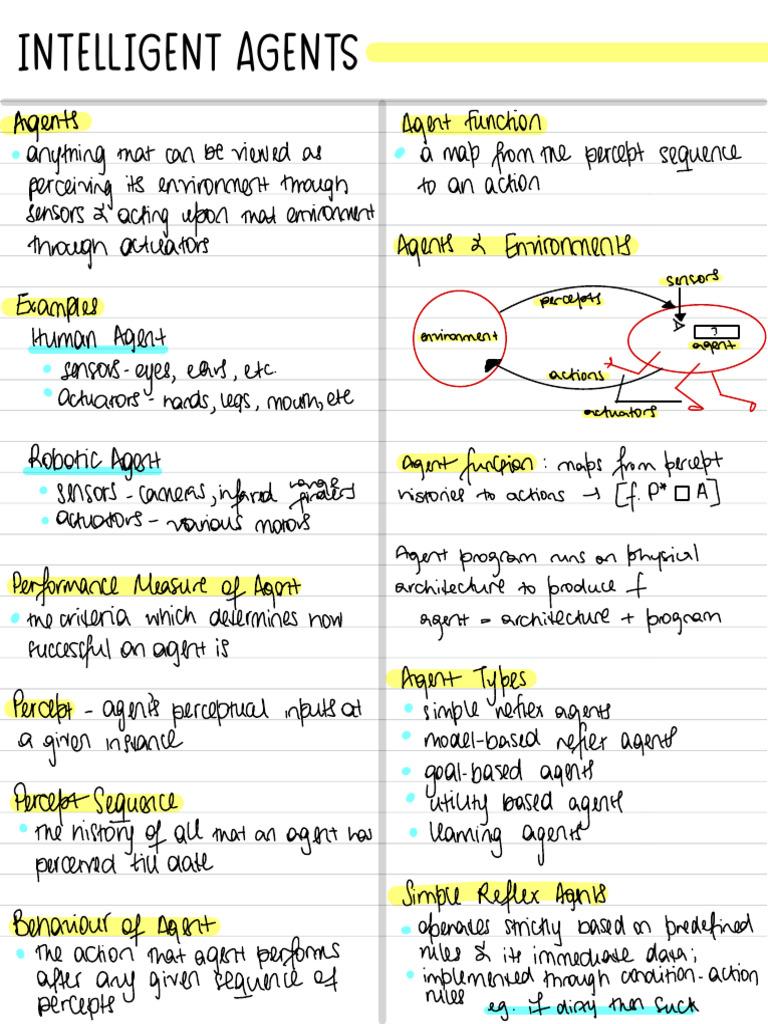 INTELLIGENT AGENTS
Agents
• anything that can be viewed as
perceiving its environment through
sensors & acting upon that environment
through actuators
Examples
Human Agent
• sensors - eyes, ears, etc.
• actuators - hands, legs, mouth, etc
Robotic Agent
• sensors - cameras, infared range finders
• actuators - various motors
Performance Measure of Agent
• the criteria which determines how
successful an agent is
Percept - agent's perceptual inputs at
a given instance
Percept Sequence
• the history of all that an agent has
perceived till date
Behaviour of Agent
• the action that agent performs
after any given sequence of
percepts
Agent Function
• a map from the percept sequence
to an action
Agents & Environments
sensors
percepts
environment
?
agent
actions
actuators
Agent function : maps from percept
histories to actions → [f. P* □ A]
Agent program runs on physical
architecture to produce f
agent = architecture + program
Agent Types
• simple reflex agents
• model-based reflex agents
• goal-based agents
• utility based agents
• learning agents
Simple Reflex Agents
• operates strictly based on predefined
rules & its immediate data;
• implemented through condition-action
rules eg. if dirty then suck